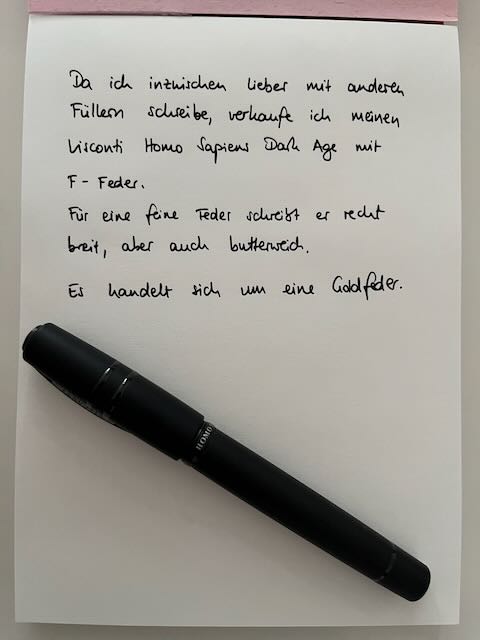 Da ich inzwischen lieber mit anderen
Füllern schreibe, verkaufe ich meinen
Visconti Homo Sapiens Dark Age mit
F-Feder.
Für eine feine Feder schreibt er recht
breit, aber auch butterweich.
Es handelt sich um eine Goldfeder.
HOMO